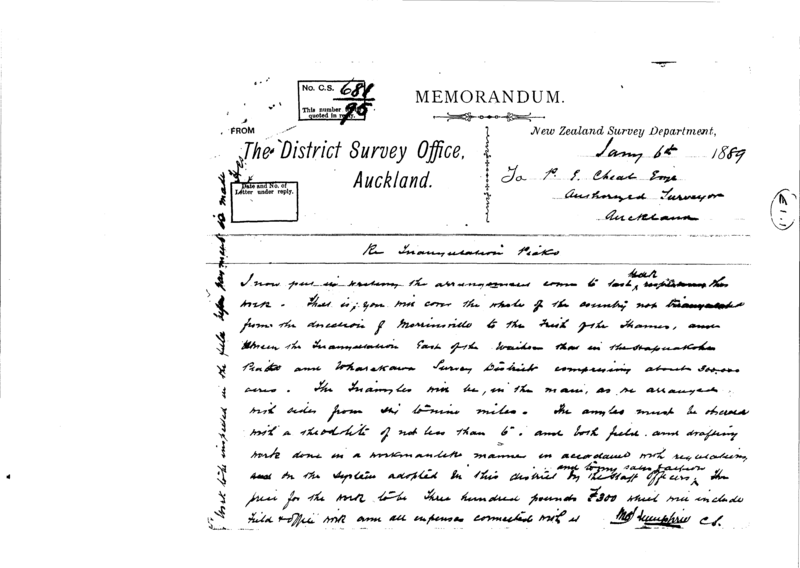 No. C.S. 681
This number
quoted in reply.
95
MEMORANDUM.
FROM
New Zealand Survey Department,
The District Survey Office,
Auckland.
Jany 6th 1889
To P. E. Cheal Esqr
Authorized Surveyor
Auckland
Date and No. of
Letter under reply.
Re Triangulation Piako
I now put in writing the arrangement come to last week respecting this
work. That is; you will cover the whole of the country not triangulated
from the direction of Morrinsville to the Firth of the Thames, and
between the Triangulation East of the Waihou that in the Hapuakohe
Piako and Wharekawa Survey District comprising about 300,000
acres. The Triangles will be, in the main, as we arranged
with sides from six to nine miles. The angles must be observed
with a theodolite of not less than 6". and both field and drafting
work done in a workmanlike manner in accordance with regulations
and on the system adopted in this district by the Staff Officers, and to my satisfaction The
price for the work to be Three hundred pounds £300 which will include
Field & office work and all expenses connected with it C.S.
Work to be inspected in the field before payment is made